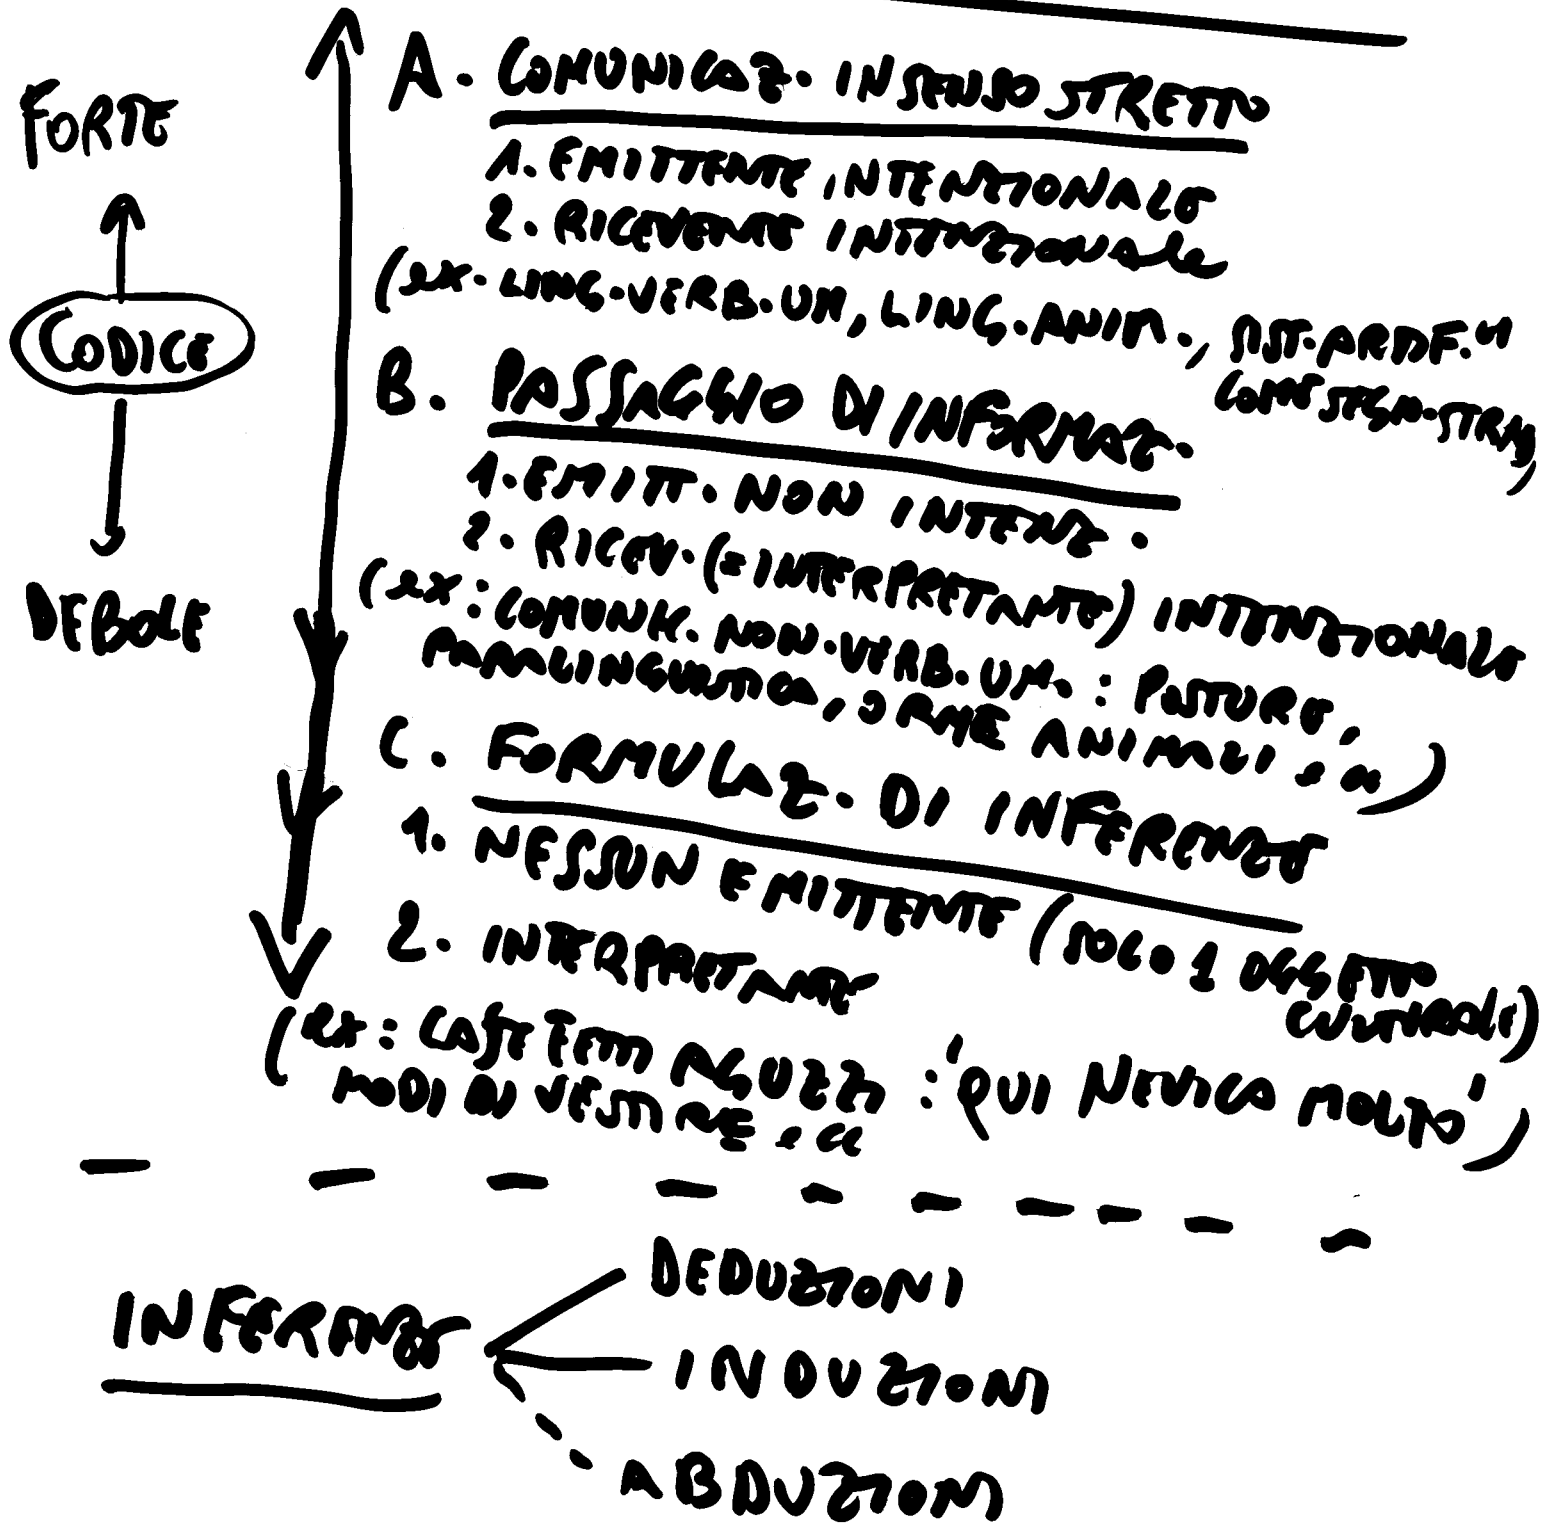 FORTE
CODICE
DEBOLE
A. COMUNICAZ. IN SENSO STRETTO
1. EMITTENTE INTENZIONALE
2. RICEVENTE INTENZIONALE
(ex. LING. VERB. UM, LING. ANIM., SIST. ARTIF.
COME SEGN. STRAD)
B. PASSAGGIO DI INFORMAZ.
1. EMITT. NON INTENZ.
2. RICEV. (= INTERPRETANTE) INTENZIONALE
(ex: COMUNIC. NON. VERB. UM. : POSTURE,
PARALINGUISTICA, ORME ANIMALI ecc)
C. FORMULAZ. DI INFERENZE
1. NESSUN EMITTENTE (SOLO 1 OGGETTO
CULTURALE)
2. INTERPRETANTE
(ex: CASE TETTI AGUZZI : 'QUI NEVICA MOLTO'
MODI DI VESTIRE ecc)
INFERENZE
DEDUZIONI
INDUZIONI
ABDUZIONI